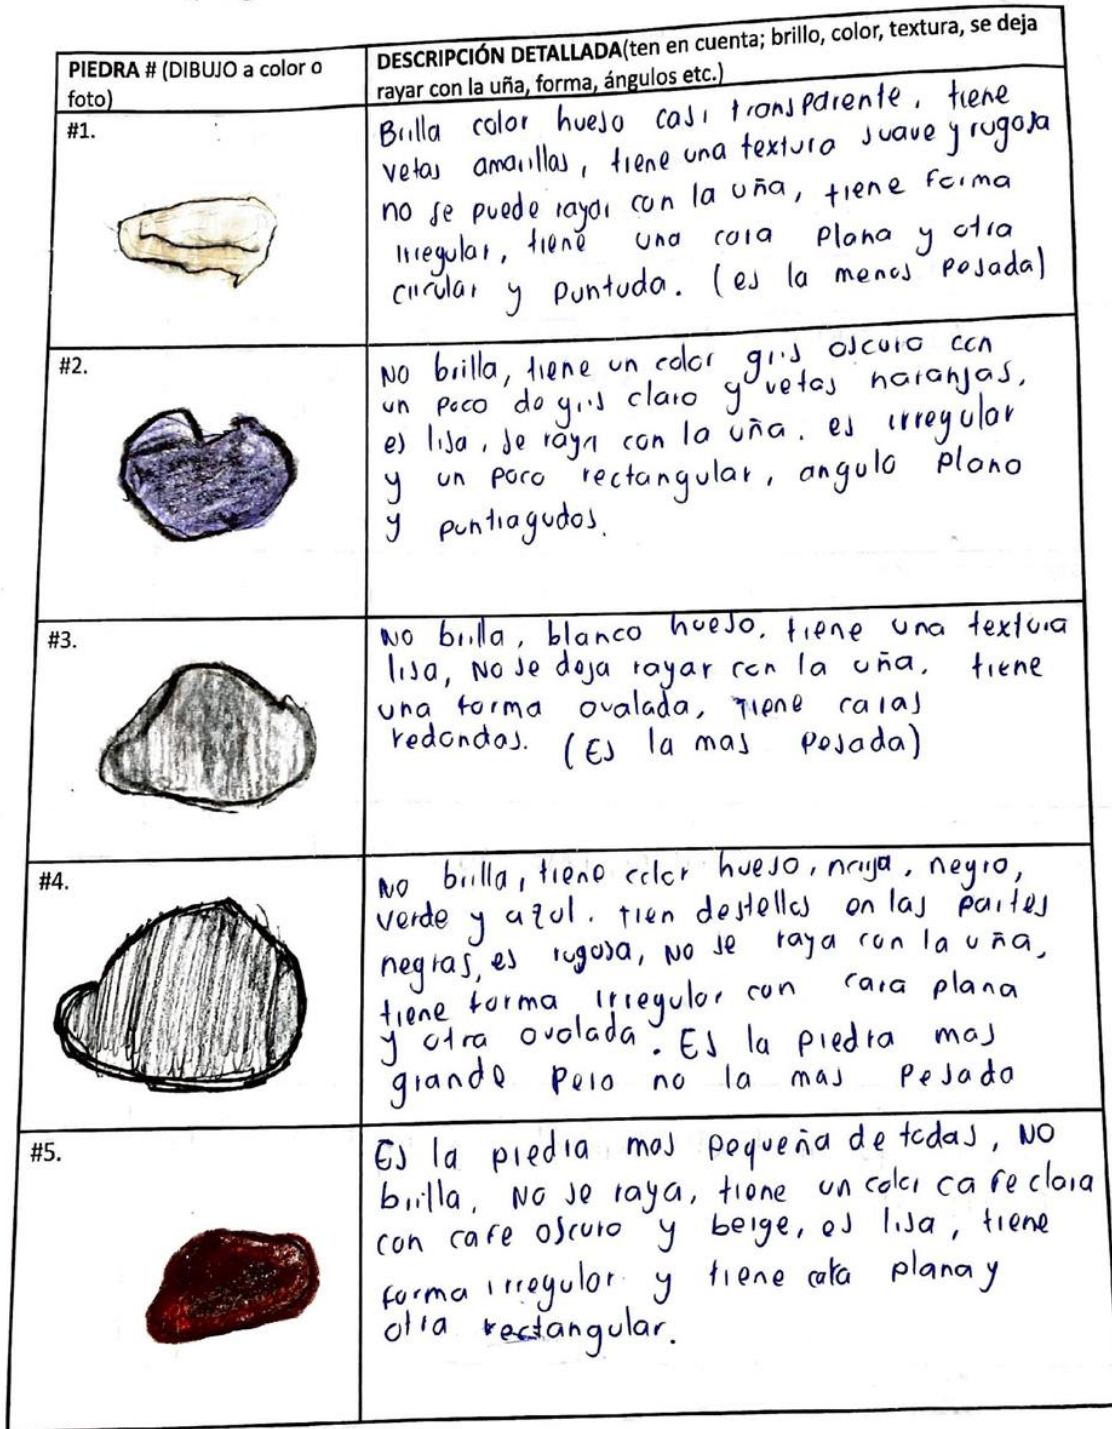 PIEDRA # (DIBUJO a color o
foto)
DESCRIPCIÓN DETALLADA(ten en cuenta; brillo, color, textura, se deja
rayar con la uña, forma, ángulos etc.)
#1.
Brilla color hueso casi transparente, tiene
vetas amarillas, tiene una textura suave y rugosa
no se puede rayar con la uña, tiene forma
irregular, tiene una cara plana y otra
circular y puntuda. (es la menos pesada)
#2.
NO brilla, tiene un color gris oscuro con
un poco do gris claro y vetas naranjas,
es lisa, se raya con la uña. es irregular
y un poco rectangular, angulo plano
y puntiagudos.
#3.
NO brilla, blanco hueso, tiene una textura
lisa, NO se deja rayar con la uña. tiene
una forma ovalada, tiene caras
redondas. (Es la mas pesada)
#4.
NO brilla, tiene color hueso, negro,
verde y azul. tien destellos en las partes
negras, es rugosa, NO se raya con la uña,
tiene forma irregular con cara plana
y otra ovalada. Es la piedra mas
grande pero no la mas pesada
#5.
Es la piedra mas pequeña de todas, NO
brilla, NO se raya, tiene un color cafe clara
con cafe oscuro y beige, es lisa, tiene
forma irregular y tiene cara plana y
otra rectangular.